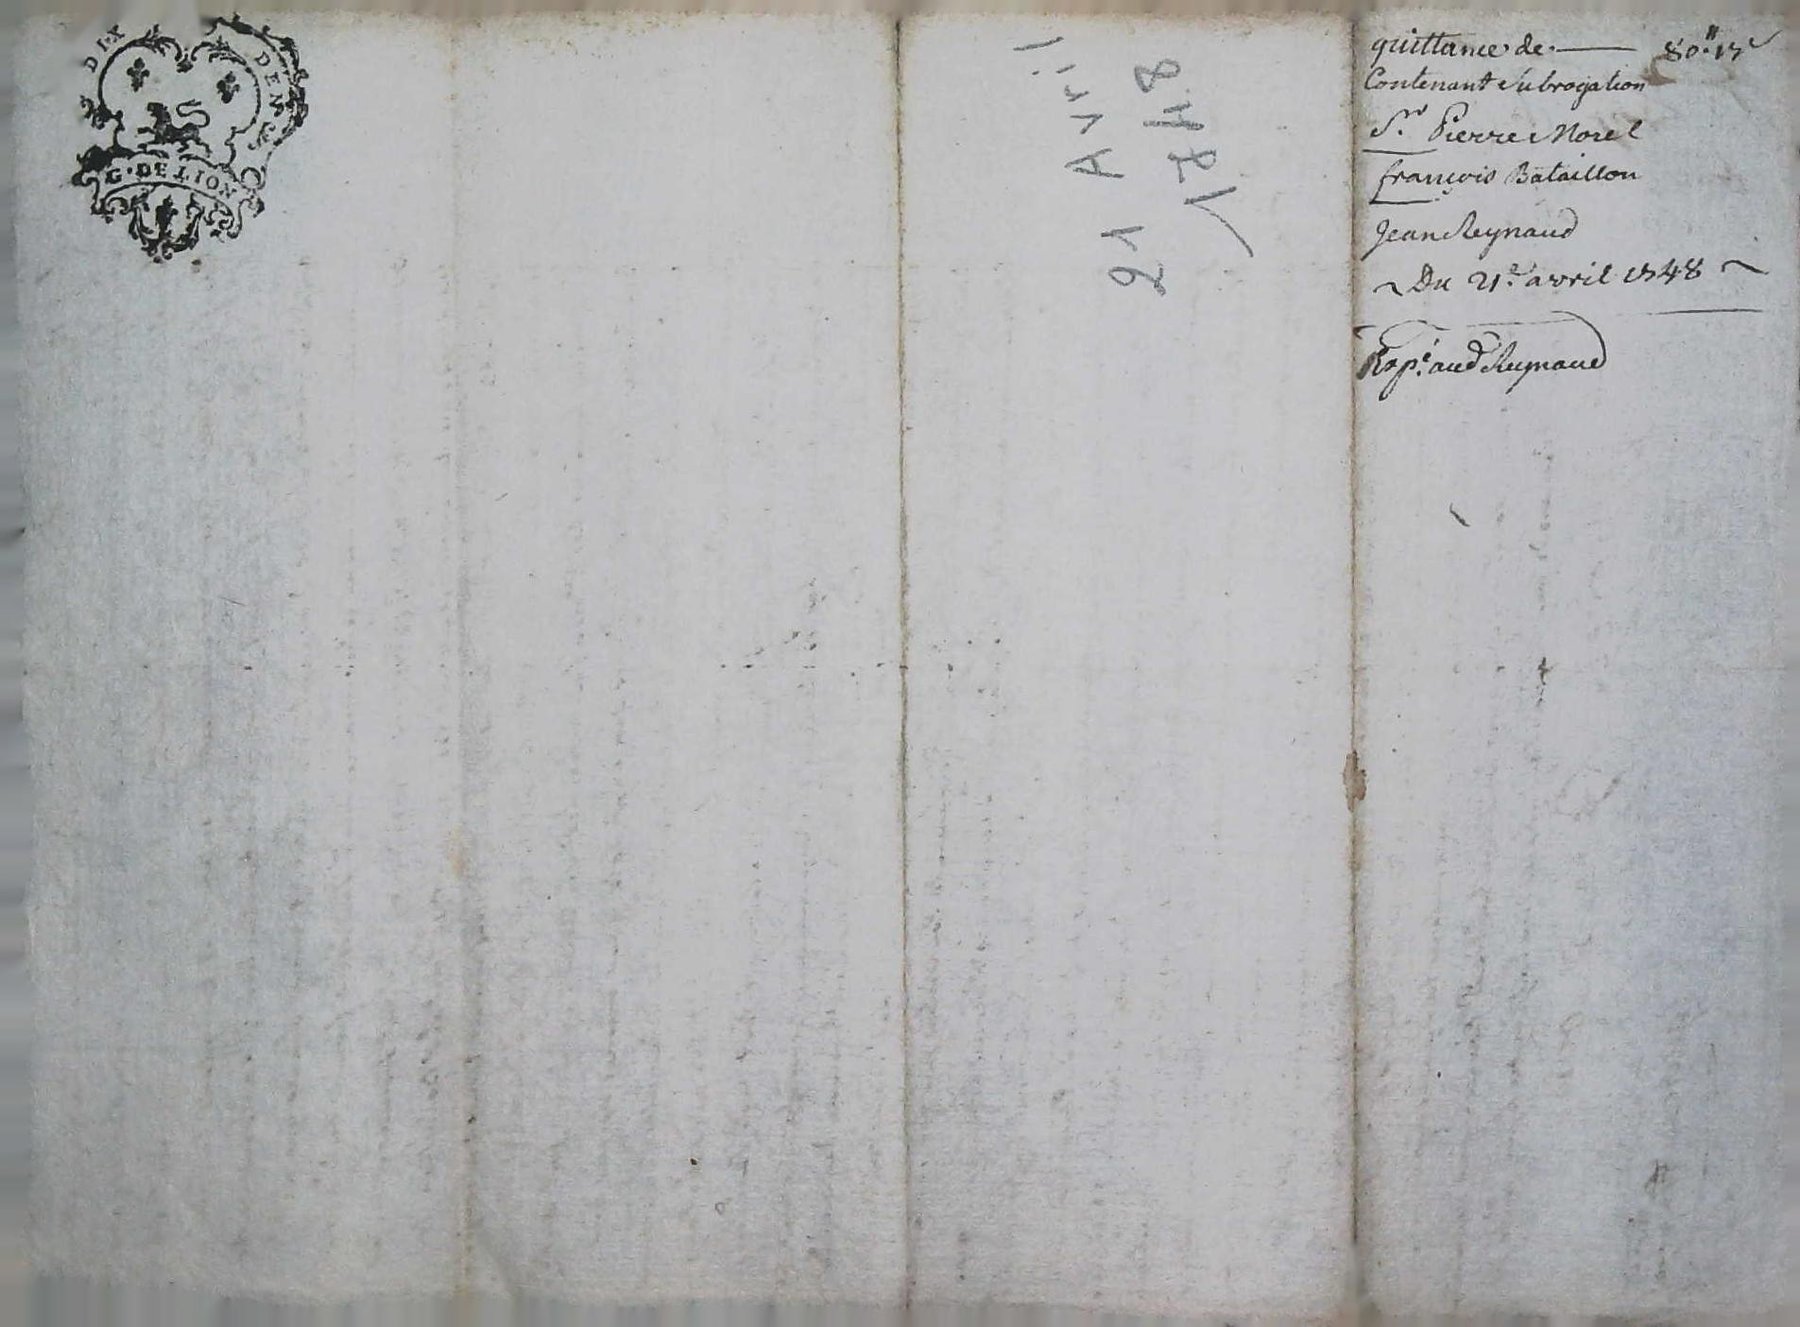 DIX DEN
G. DE LION
21 Avril
1748
quittance de — 80.# 15ˢ
Contenant Subrogation
Sr. Pierre Morel
françois Bataillon
Jean Reynaud
~ Du 21e. avril 1748 ~
Expé. aud Reynaud